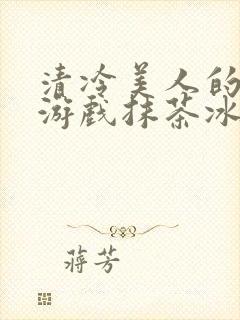 清冷美人的
游戏抹茶冰
蒋芳